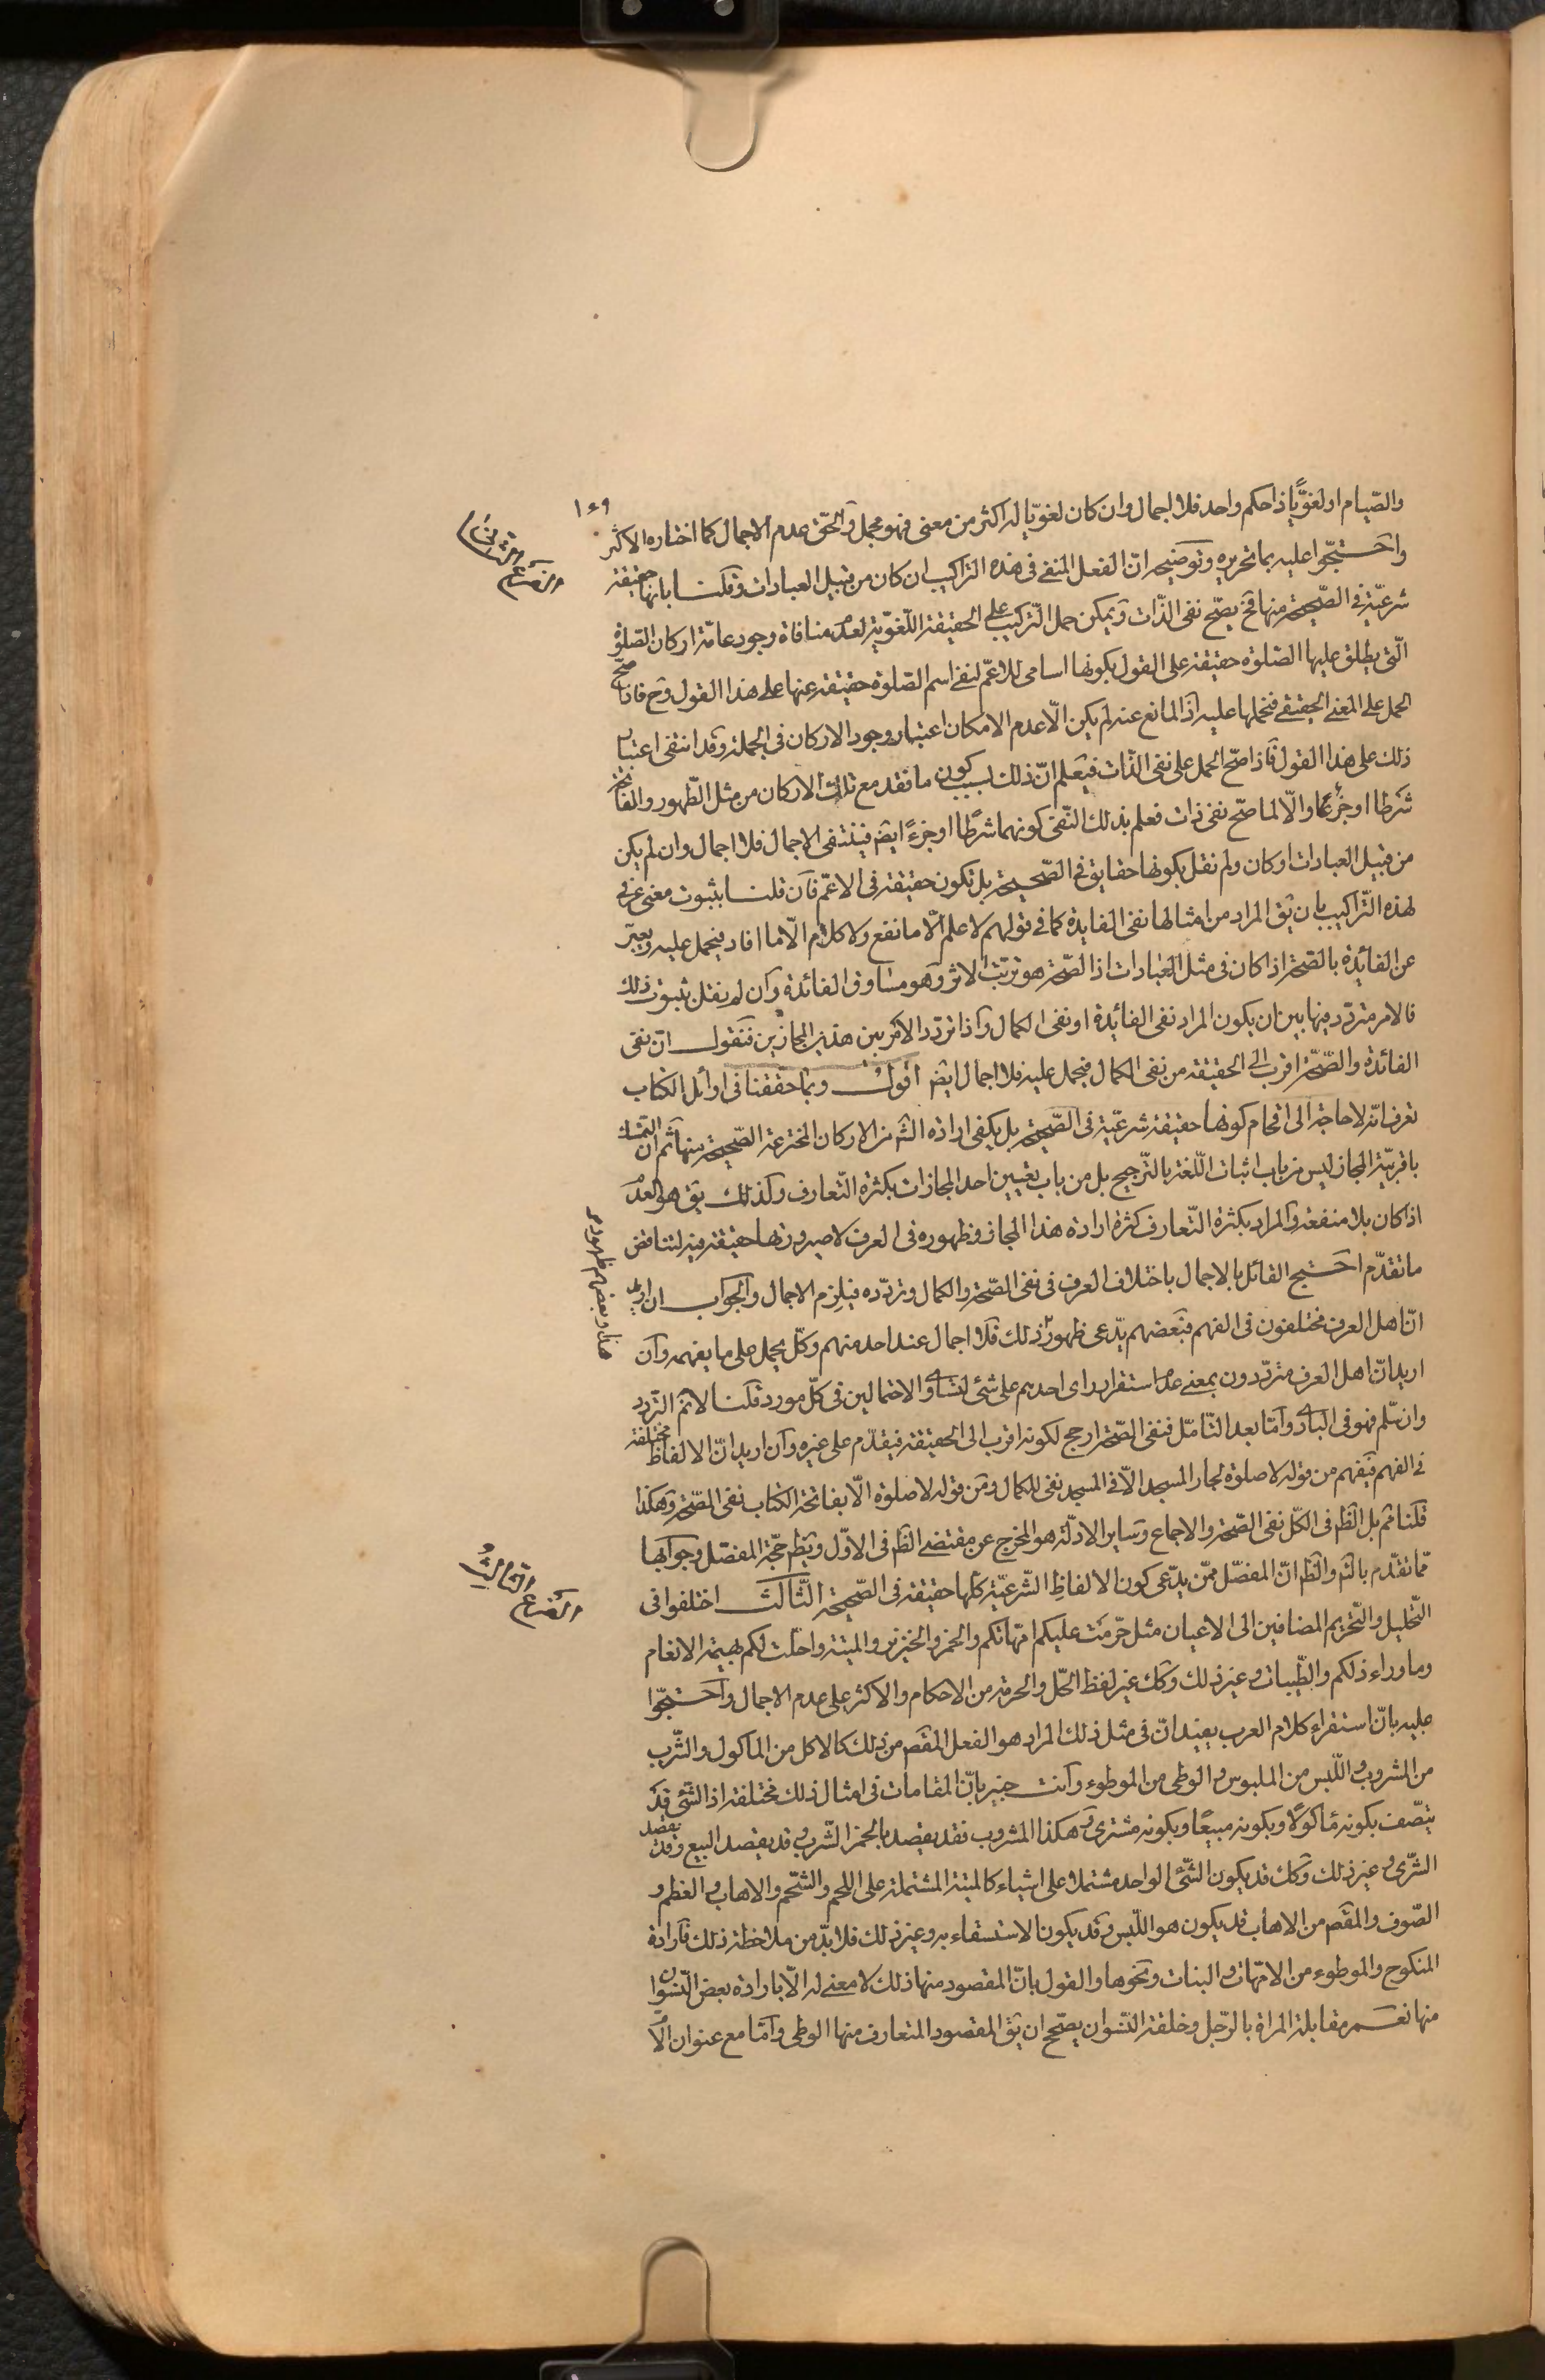 ١٤٩
والصّيام او لغويًّا ذا حكم واحد فلا اجمال وان كان لغويّا له اكثر من معنى فهو مجمل والحقّ عدم الاجمال كما اختاره الاكثر
الفرع الثانى
واحتجّوا عليه بما تحريره وتوضيحه انّ الفعل المنفى فى هذه التراكيب ان كان من قبيل العبادات وقلنا بانها حقيقة
شرعيّة فى الصّحيحة منها فح يصحّ نفى الذّات ويمكن حمل التّركيب على الحقيقة اللّغويّة لعدم منافاة وجود عامّة اركان الصّلوة
الّتى يطلق عليها الصّلوة حقيقة على القول بكونها اسامى للاعمّ لنفى اسم الصّلوة حقيقة عنها على هذا القول وح فاذا صحّ
الحمل على المعنى الحقيقى فنحملها عليه اذ المانع عنه لم يكن الّا عدم الامكان اعتبار وجود الاركان فى الجملة وقد انتفى اعتبار
ذلك على هذا القول فاذا صحّ الحمل على نفى الذّات فيعلم انّ ذلك بسبب كون ما نقد مع تلك الاركان من مثل الطّهور والفاتحة
شرطا او جزءًا والّا لما صحّ نفى ذات فعلم بذلك النّفى كونهما شرطًا او جزءً ايض فينتفى الاجمال فلا اجمال وان لم يكن
من قبيل العبادات او كان ولم نقل بكونها حقايق فى الصّحيحة بل تكون حقيقة فى الاعمّ فان قلنا بثبوت معنى عرفى
لهذه التّراكيب بان يق المراد من امثالها نفى الفايدة كما فى قولهم لا علم الّا ما نفع ولا كلام الّا ما افاد فيحمل عليه ويعبّر
عن الفائدة بالصّحة اذا كان فى مثل العبادات اذ الصّحة هو ترتّب الاثر وهو مساوق الفائدة وان لم نقل بثبوت ذلك
فالامر متردّد فيها بين ان يكون المراد نفى الفائدة او نفى الكمال واذا تردّد الامر بين هذين المجازين فنقول انّ نفى
الفائدة والصّحّة اقرب الى الحقيقة من نفى الكمال فيحمل عليه فلا اجمال ايض اقول وبما حققنا فى اوائل الكتاب
تعرف انّه لا حاجة الى اقحام كونها حقيقة شرعيّة فى الصّحيحة بل يكفى ارادة الش من الاركان المخترعة الصّحيحة منها ثم انّ التمسّك
باقربيّة المجاز ليس من باب اثبات اللّغة بالتّرجيح بل من باب تعيين احد المجازات بكثرة التّعارف وكذلك يق هو كالعدم
اذا كان بلا منفعة والمراد بكثرة التّعارف كثرة ارادة هذا المجاز وظهوره فى العرف لا صيرورتها حقيقة فيه ليناقض
ما تقدّم احتج القائل بالاجمال باختلاف العرف فى نفى الصّحة والكمال وتردّده فيلزم الاجمال والجواب ان اريد
انّ اهل العرف مختلفون فى الفهم فبعضهم يدّعى ظهور ذلك فلا اجمال عند احد منهم وكلّ يحمل على ما يفهمه وان
اريد انّ اهل العرف متردّدون بمعنى عدم استقرار راى احدهم على شئ لتساوى الاحتمالين فى كلّ مورد قلنا لا نم التّردد
وان سلّم فهو فى البادى وامّا بعد التّامّل فنفى الصّحة ارجح لكونه اقرب الى الحقيقة فيقدّم على غيره وان اريد انّ الالفاظ مختلفة
فى الفهم فيفهم من قوله لا صلوة لجار المسجد الّا فى المسجد نفى الكمال ومن قوله لا صلوة الّا بفاتحة الكتاب نفى الصّحة وهكذا
قلنا نم بل الظ فى الكلّ نفى الصّحة والاجماع وساير الادلّة هو المخرج عن مقتضى الظ فى الاوّل ويظهر حجّة المفصّل وجوابها
ممّا تقدّم بالتم والظ انّ المفصّل ممّن يدّعى كون الالفاظ الشّرعيّة كلّها حقيقة فى الصّحيحة الثّالث اختلفوا فى
الفرع الثالث
التّحليل والتّحريم المضافين الى الاعيان مثل حرّمت عليكم امّهاتكم والخمر والخنزير والميتة واحلّت لكم بهيمة الانعام
وما وراء ذلكم والطّيبات وغير ذلك وكك غير لفظ الحّل والحرمة من الاحكام والاكثر على عدم الاجمال واحتجّوا
عليه بانّ استقراء كلام العرب يفيد انّ فى مثل ذلك المراد هو الفعل المقصود من ذلك كالاكل من المأكول والشّرب
من المشروب واللّبس من الملبوس والوطى من الموطوء وانت خبير بانّ المقامات فى امثال ذلك مختلفة اذ الشّئ قد
يتّصف بكونه مأكولًا وبكونه مبيعًا وبكونه مشترى وهكذا المشروب فقد يقصد بالخمر الشّرب وقد يقصد البيع وقد يقصد
الشّرى وغير ذلك وكك قد يكون الشّئ الواحد مشتملا على اشياء كالميتة المشتملة على اللحم والشّحم والاهاب والعظم و
الصّوف والمقصم من الاهاب قد يكون هو اللّبس وقد يكون الاستسقاء به وغير ذلك فلا بدّ من ملاحظة ذلك فارادة
المنكوح والموطوء من الامّهات والبنات ونحوها والقول بانّ المقصود منها ذلك لا معنى له الّا بارادة بعض النّسوان
منها نعم مقابلة المراة بالرّجل وخلقة النّسوان يصحّح ان يق المقصود المتعارف منها الوطى وامّا مع عنوان الام